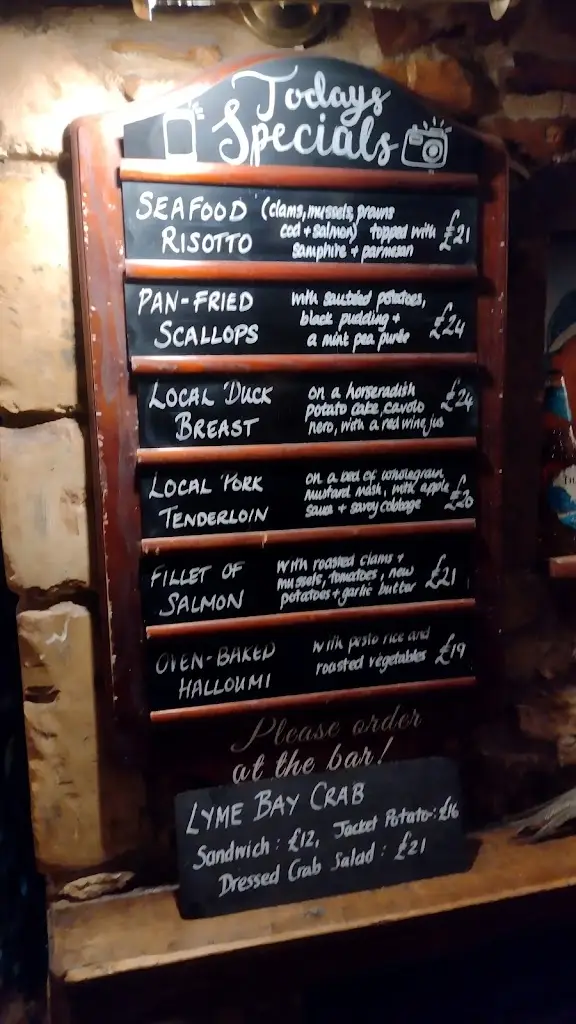 Todays
Specials
SEAFOOD (clams, mussels, prawns
cod + salmon) topped with
RISOTTO samphire + parmesan £21
PAN-FRIED with sautéed potatoes,
black pudding +
SCALLOPS a mint pea purée £24
LOCAL DUCK on a horseradish
potato cake, cavolo
BREAST nero, with a red wine jus £24
LOCAL PORK on a bed of wholegrain
mustard mash, with apple
TENDERLOIN sauce + savoy cabbage £20
FILLET OF with roasted clams +
mussels, tomatoes, new
SALMON potatoes + garlic butter £21
OVEN-BAKED with pesto rice and
HALLOUMI roasted vegetables £19
Please order
at the bar!
LYME BAY CRAB
Sandwich: £12, Jacket Potato: £16
Dressed Crab Salad: £21